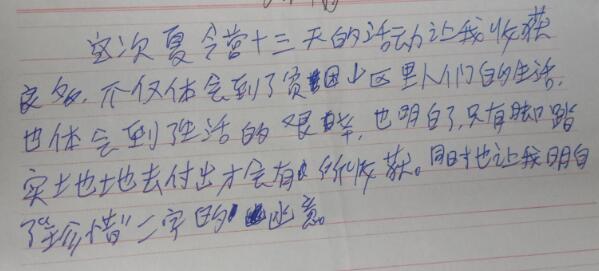 这次夏令营十三天的活动让我收获
良多。不仅体会到了贫困山区里人们的生活,
也体会到了生活的艰辛,也明白了,只有脚踏
实地地去付出才会有所收获。同时也让我明白
了“珍惜”二字的意。